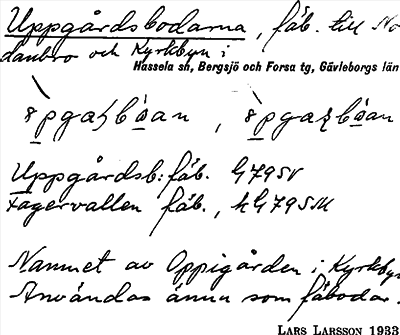 Uppgårdsbodarna, fäb. till No
danbro och Kyrkbyn i
Hassela sn, Bergsjö och Forsa tg, Gävleborgs län
Uppgårdsb: fäb. G79SV
Fagervallen fäb., hG79SM
Namnet av Oppigården i Kyrkbyn
Användas ännu som fäbodar.
LARS LARSSON 1933